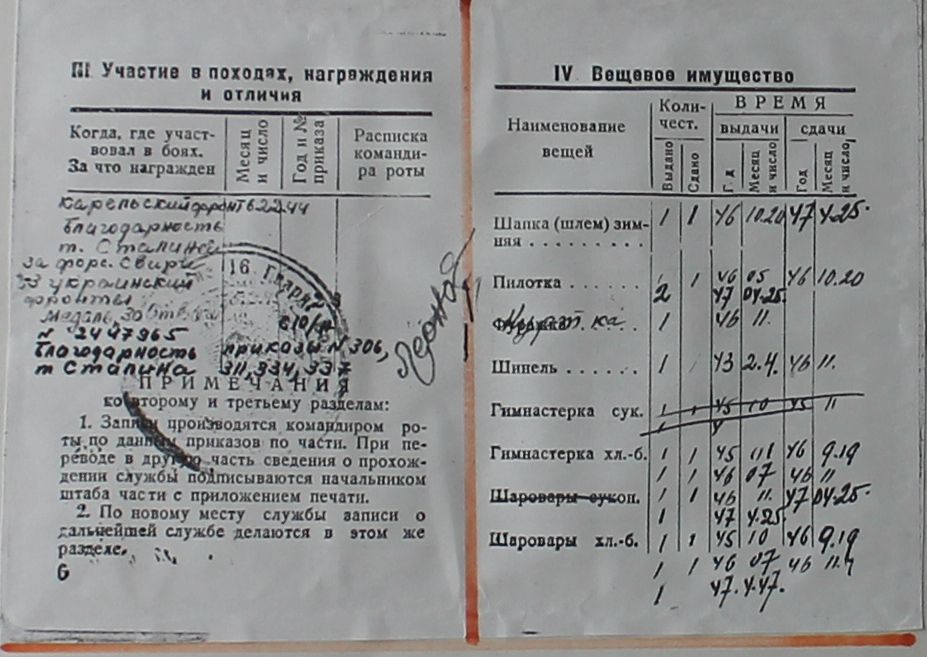 III Участие в походах, награждения
и отличия
Когда, где участ-
вовал в боях.
За что награжден
Месяц
и число
Год и №
приказа
Расписка
команди-
ра роты
Карельский фронт 6.22.44
благодарность
т. Сталина
за форс. Свири
16 Гвард
3 украинский
фронты
медаль За отвагу
N 2447965
благодарность приказы N 306,
т Сталина 311, 334, 337
ПРИМЕЧАНИЯ
ко второму и третьему разделам:
1. Записи производятся командиром ро-
ты по данным приказов по части. При пе-
реводе в другую часть сведения о прохож-
дении службы подписываются начальником
штаба части с приложением печати.
2. По новому месту службы записи о
дальнейшей службе делаются в этом же
разделе.
6
IV Вещевое имущество
Наименование
вещей
Коли-
чест.
Выдано
Сдано
ВРЕМЯ
выдачи
сдачи
Год
Месяц
и число
Год
Месяц
и число
Шапка (шлем) зим-
няя . . . . . . . . . 1 1 46 10.20 47 4.25.
Пилотка . . . . . . 1 1 46 05 46 10.20
2 47 04.25.
1 46 11.
Шинель . . . . . . 1 1 43 2.4. 46 11.
Гимнастерка сук. 1 1 45 10 45 11
Гимнастерка хл.-б. 1 1 45 46 9.19
1 1 46 07 46 11
Шаровары сукон. 1 1 46 11. 47 04.25.
1 47 4.25.
Шаровары хл.-б. 1 1 45 10 46 9.19
1 1 46 07 46 11.
1 47. 4.47.